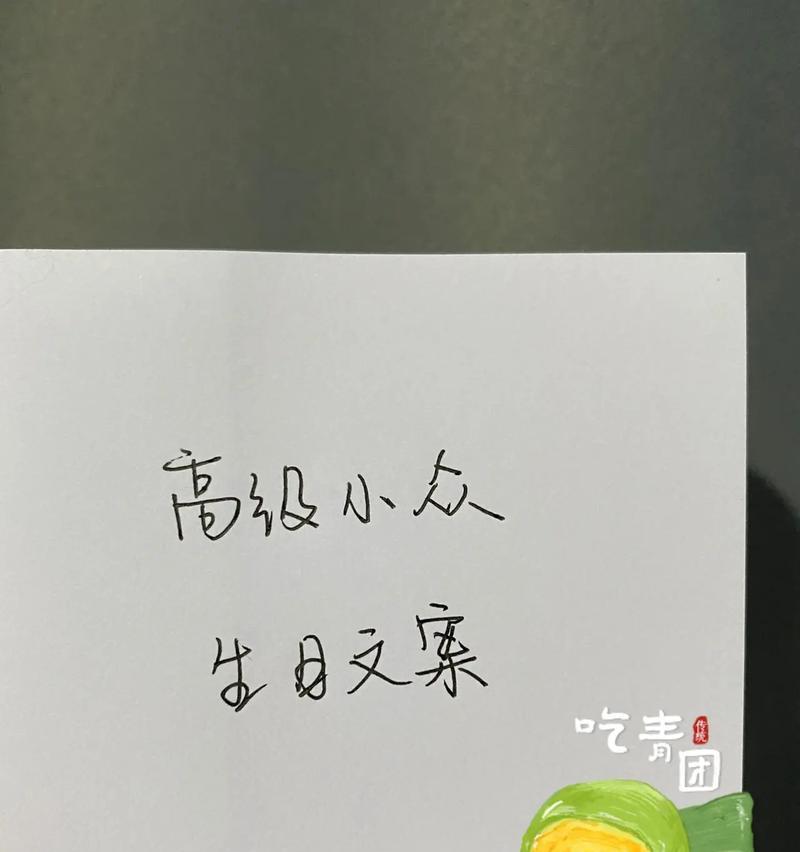 高级小众
生日文案
吃青
传统
团